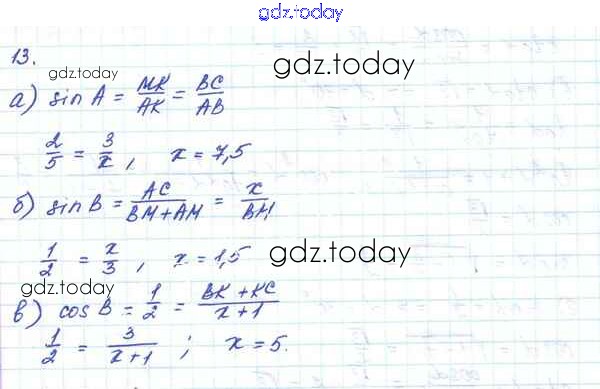 gdz.today
13.
gdz.today
gdz.today
а) sin A = MK/AK = BC/AB
2/5 = 3/x, x = 7,5
б) sin B = AC/BM+AM = x/BM
1/2 = x/3, x = 1,5
gdz.today
gdz.today
в) cos B = 1/2 = BK+KC/x+1
1/2 = 3/x+1; x = 5.
gdz.today